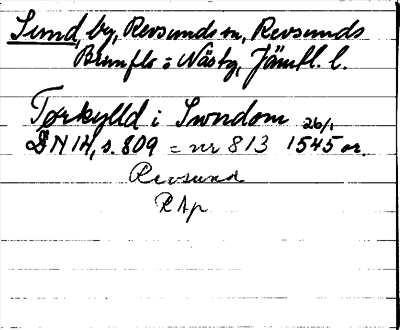 Sund, by, Revsunds sn, Revsunds
Brunflo o Näsby, Jämtl. l.
Torkylld i Swndom 26/1
DN 14, s. 809 = nr 813 1545 or.
Revsund
RAp